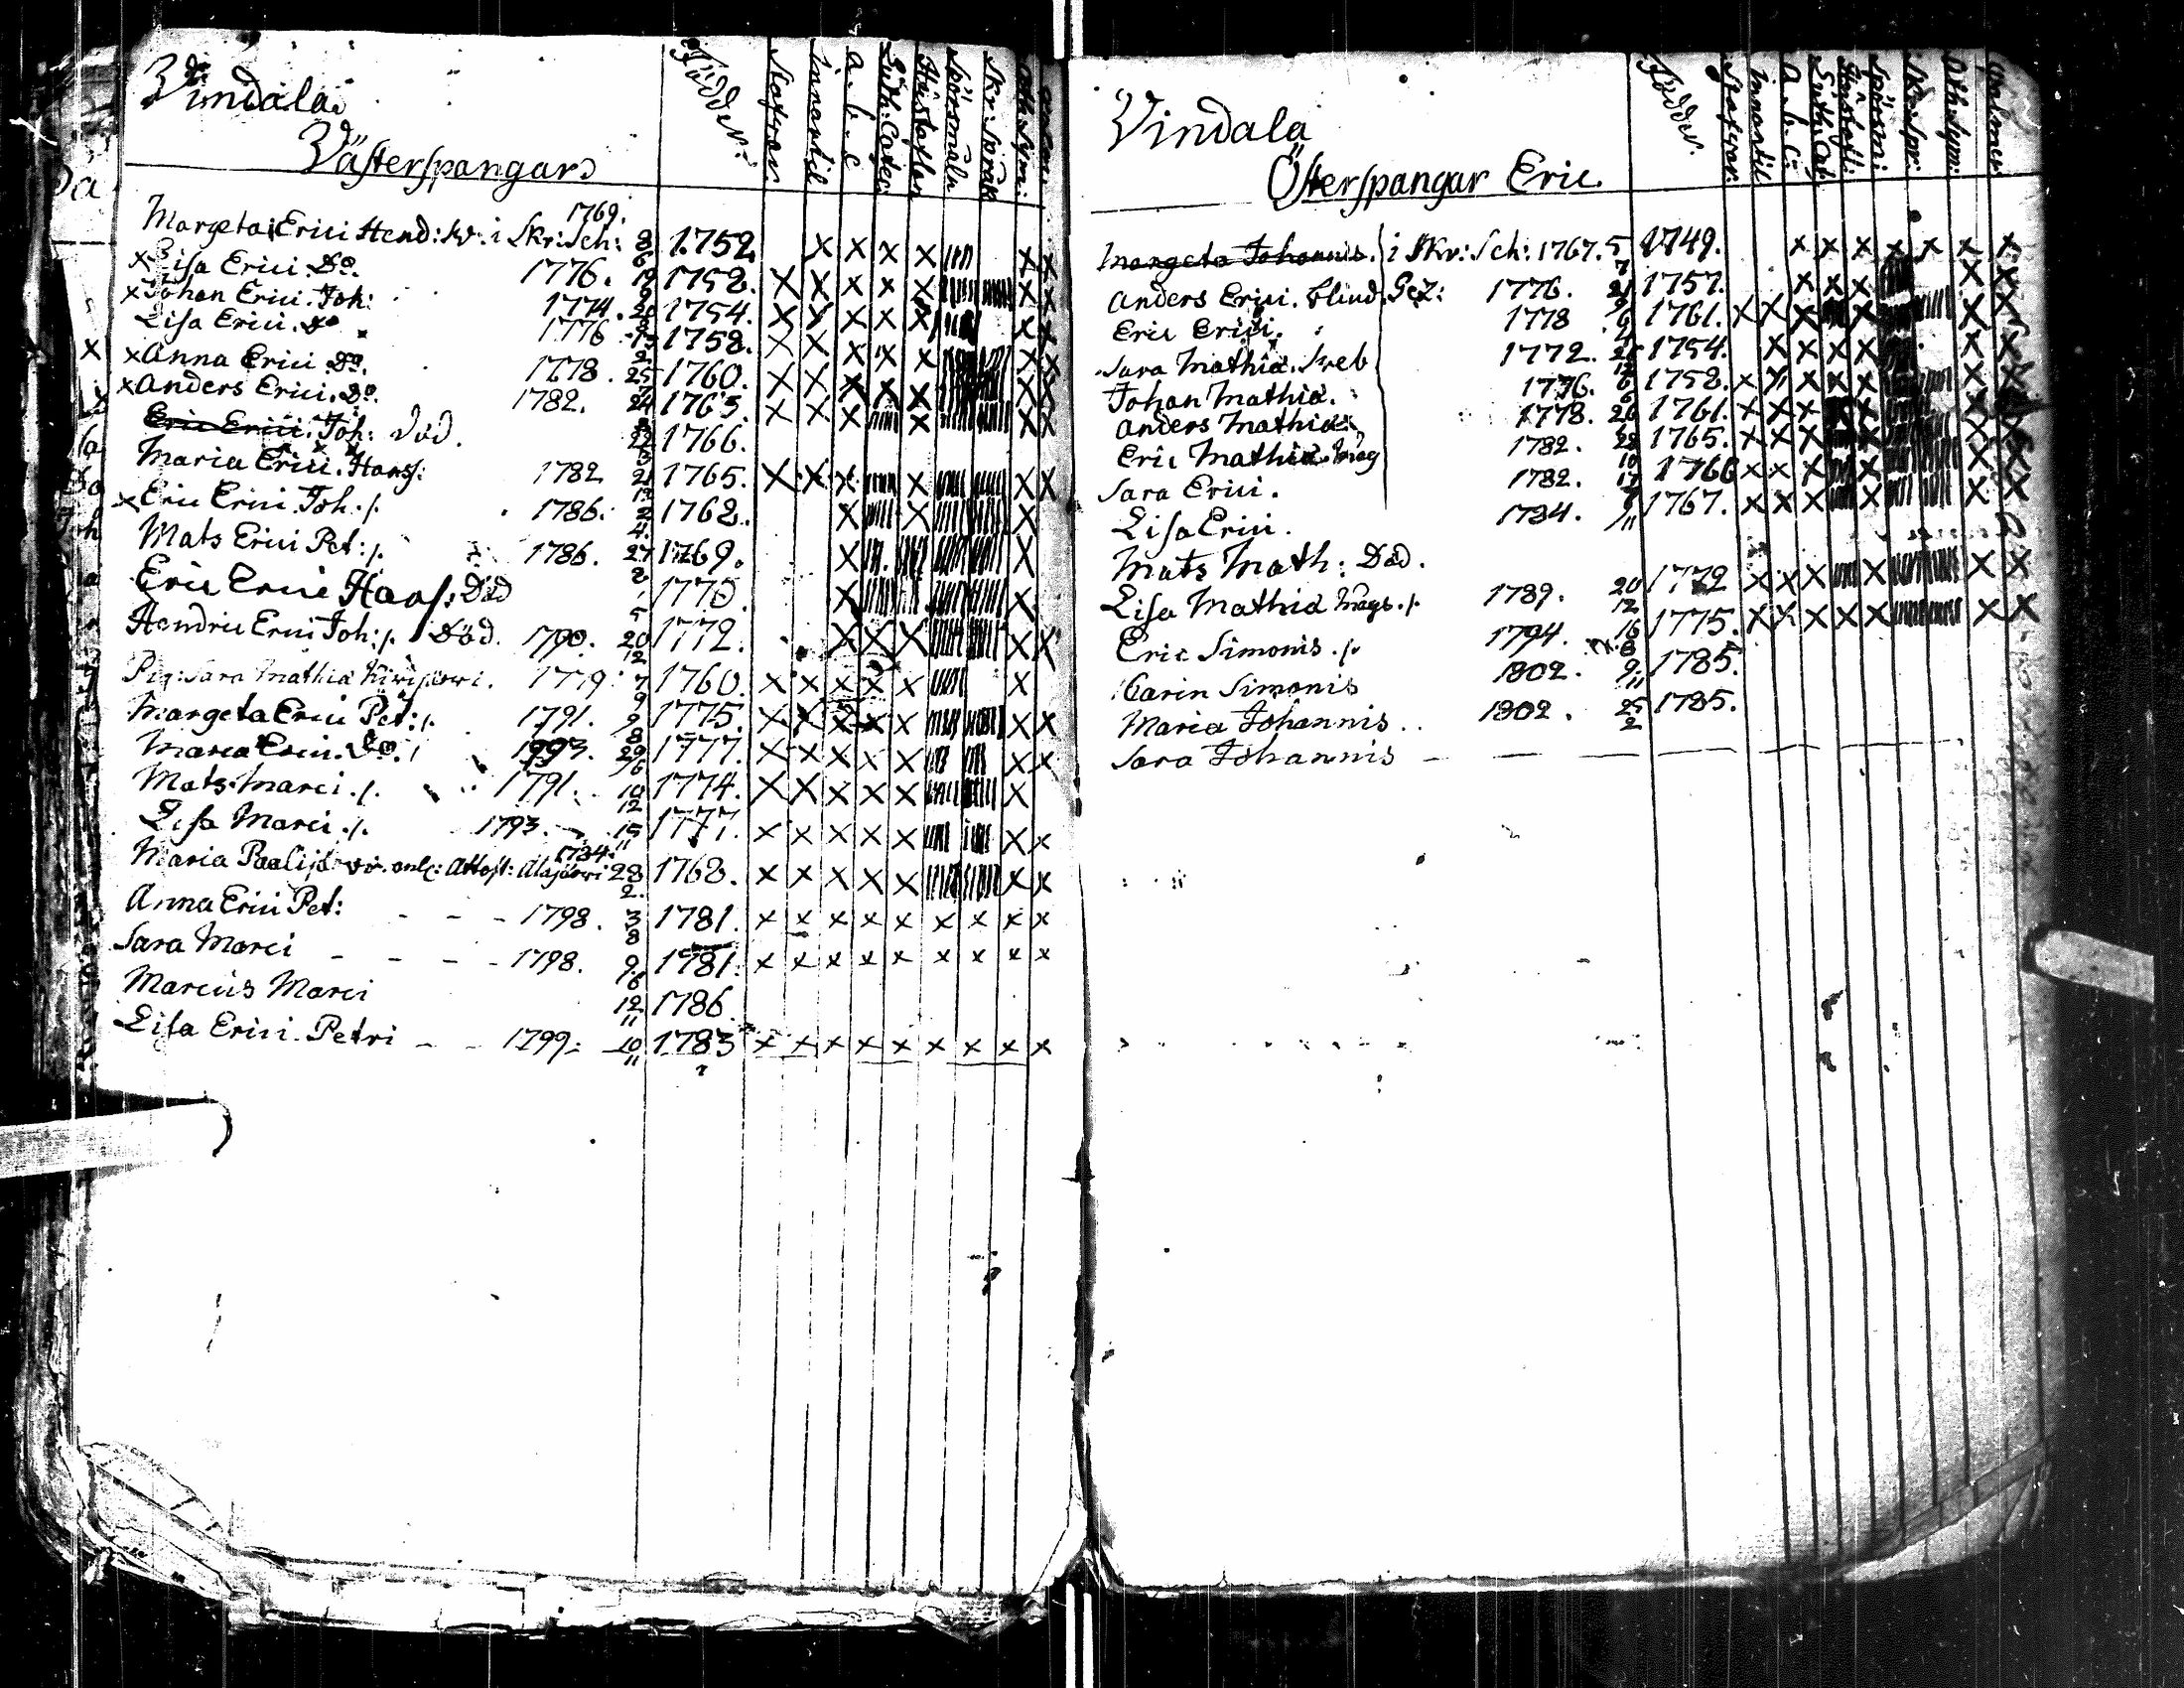 Vindala
Västerspangar
Födde
Stafvar
innantil
a. b. c
Luth: Catec:
Hustaflan
Spörsmåln
Skr: Språk
Ath: Sym:
Margeta Erici Hend: Kr: i Skr: Sch: 1769. 8 6 1752.
x Lisa Erici. Do. 1776. 19 9 1752. x x x x x x x
x Johan Erici. Joh: 1774. 20 8 1754. x x x x x x x
Lisa Erici. Do 1776 15 2 1758. x x x x x x x
x Anna Erici. Do. 1778. 25 7 1760. x x x x x x x
x Anders Erici. Do. 1782. 24 1763. x x x x x x
Eric Erici. Joh: död. 22 5 1766.
Maria Erici. Hanss: 1782 21 12 1765. x x x x x x
x Eric Erici Joh. /. 1786. 2 4. 1762. x x x
Mats Erici Pet: /. 1786. 27 2 1769. x x
Eric Erici Hanss: Död 1770. x x
Hendric Erici Joh: /. Död. 1790. 20 12 1772. x x x x x
Pig: Sara Mathiæ Kiwijärwi. 1779 7 9 1760. x x x x x x
Margeta Erici Pet: /. 1791. 2 8 1775. x x x x x x x
Maria Erici. Do. / 1793. 29 6 1777. x x x x x x x
Mats Marci. /. 1791. 10 12 1774. x x x x x x
Lisa Marci. /. 1793. 15 11 1777. x x x x x x x
Maria 1784. 28 2. 1768. x x x x x x x
Anna Erici Pet: - - - 1798. 3 8 1781. x x x x x x x x x
Sara Marci - - - - 1798. 9 1781. x x x x x x x x x
Marcus Marci 12 11 1786
Lisa Erici. Petri - - 1799: 10 11 1783 x x x x x x x x x
Vindala
Österspangar Eric.
Födde.
Stafvar.
innantil
a. b. c:
Luth: Cat.
Hustafl:
Spörsm:
Skr: Spr:
Ath: Sym:
Psalmer
Margeta Johannis. i Skr: Sch: 1767. 5 7 1749. x x x x x x x
Anders Erici. blind. 1776. 21 9 1757. x x x x x
Eric Erici. 1778 6 1761. x x x x x x
Sara Mathiæ. 1772. 1754. x x x x x x
Johan Mathiæ. 1776. 6 1758. x x x x x x x
Anders Mathiæ 1778. 26 1761. x x x x x x
Eric Mathiæ. Mag 1782. 22 10 1765. x x x x x x
Sara Erici. 1782. 17 1766 x x x x x x
Lisa Erici. 1784. 11 1767. x x x x x x
Mats Math: Död.
Lisa Mathiæ Mags. /. 1789. 20 12 1772 x x x x x x
Eric Simonis. /. 1794. 16 8 1775. x x x x x x x
Carin Simonis 1802. 9 11 1785.
Maria Johannis.. 1802. 25 2 1785.
Sara Johannis